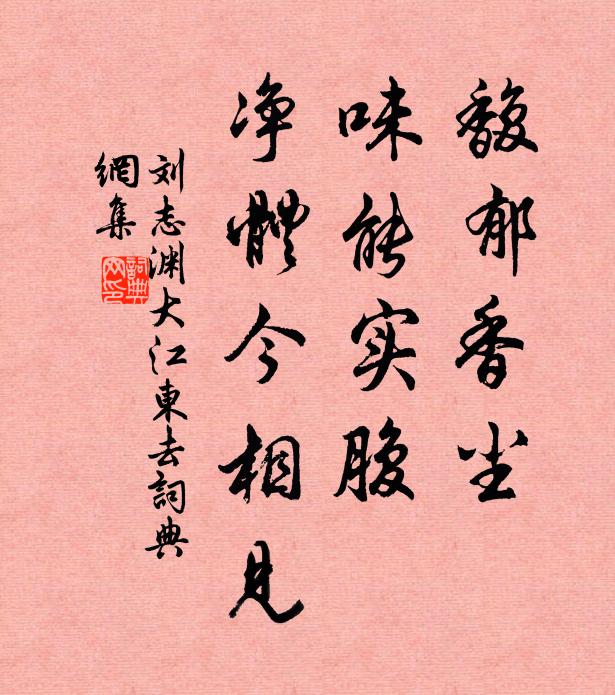 馥郁香尘
味能实腹
净體今相見
刘志渊大江東去詞典
網集
詞典网印